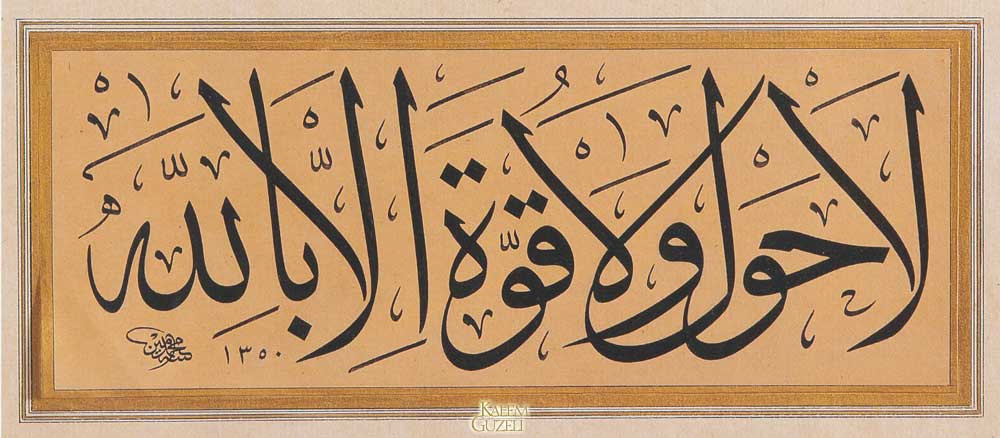 لا حول ولا قوة الا بالله
١٣٥٠
KALEM
GÜZELİ